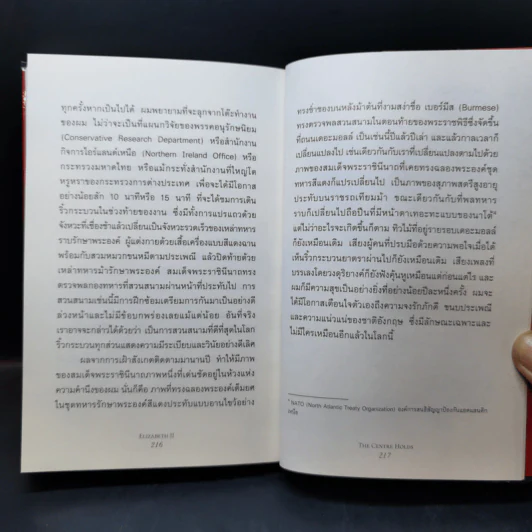 ทุกครั้งหากเป็นไปได้ ผมพยายามที่จะลุกจากโต๊ะทำงาน
ของผม ไม่ว่าจะเป็นที่แผนกวิจัยของพรรคอนุรักษนิยม
(Conservative Research Department) หรือสำนักงาน
กิจการไอร์แลนด์เหนือ (Northern Ireland Office) หรือ
กระทรวงมหาดไทย หรือแม้กระทั่งสำนักงานที่ใหญ่โต
หรูหราของกระทรวงการต่างประเทศ เพื่อจะได้มีโอกาส
อย่างน้อยสัก 10 นาทีหรือ 15 นาที ที่จะได้ชมการเดิน
ริ้วกระบวนในช่วงท้ายของงาน ซึ่งมีทั้งการแปรแถวด้วย
จังหวะที่เชื่องช้าแล้วเปลี่ยนเป็นจังหวะรวดเร็วของเหล่าทหาร
ราบรักษาพระองค์ ผู้แต่งกายด้วยเสื้อเครื่องแบบสีแดงฉาน
พร้อมกับสวมหมวกขนหมีตามประเพณี แล้วปิดท้ายด้วย
เหล่าทหารม้ารักษาพระองค์ สมเด็จพระราชินีนาถทรง
ตรวจพลกองทหารที่สวนสนามผ่านหน้าที่ประทับไป การ
สวนสนามเช่นนี้มีการฝึกซ้อมเตรียมการกันมาเป็นอย่างดี
ล่วงหน้าและไม่มีข้อบกพร่องเลยแม้แต่น้อย อันที่จริง
เราอาจจะกล่าวได้ด้วยว่า เป็นการสวนสนามที่ดีที่สุดในโลก
ริ้วกระบวนทุกส่วนแสดงความมีระเบียบและวินัยอย่างดีเลิศ
ผลจากการเฝ้าสังเกตติดตามมานานปี ทำให้มีภาพ
ของสมเด็จพระราชินีนาถภาพหนึ่งที่เด่นชัดอยู่ในห้วงแห่ง
ความคำนึงของผม นั่นก็คือ ภาพที่ทรงฉลองพระองค์เต็มยศ
ในชุดทหารรักษาพระองค์สีแดงประทับแบบอานไขว้อย่าง
ELIZABETH II
216
ทรงช้าชองบนหลังม้าต้นที่งามสง่าชื่อ เบอร์มีส (Burmese)
ทรงตรวจพลสวนสนามในตอนท้ายของพระราชพิธีซึ่งจัดขึ้น
ที่ถนนเดอะมอลล์ เป็นเช่นนี้ปีแล้วปีเล่า และแล้วกาลเวลาก็
เปลี่ยนแปลงไป เช่นเดียวกันกับเราที่เปลี่ยนแปลงตามไปด้วย
ภาพของสมเด็จพระราชินีนาถที่เคยทรงฉลองพระองค์ชุด
ทหารสีแดงก็แปรเปลี่ยนไป เป็นภาพของสุภาพสตรีสูงอายุ
ประทับบนราชรถเทียมม้า ขณะเดียวกันกับที่พลทหาร
ราบก็เปลี่ยนไปถือปืนที่มีหน้าตาเทอะทะแบบของนาโต้*
แต่ไม่ว่าอะไรจะเกิดขึ้นก็ตาม ทิวไม้ที่อยู่รายรอบเดอะมอลล์
ก็ยังเหมือนเดิม เสียงผู้คนที่ปรบมือด้วยความพอใจเมื่อได้
เห็นริ้วกระบวนยาตราผ่านไปก็ยังเหมือนเดิม เสียงเพลงที่
บรรเลงโดยวงดุริยางค์ก็ยังฟังคุ้นหูเหมือนแต่ก่อนแต่ไร และ
ผมก็มีความสุขเป็นอย่างยิ่งที่อย่างน้อยปีละหนึ่งครั้ง ผมจะ
ได้มีโอกาสเตือนใจตัวเองถึงความจงรักภักดี ขนบประเพณี
และความแน่วแน่ของชาติอังกฤษ ซึ่งมีลักษณะเฉพาะและ
ไม่มีใครเหมือนอีกแล้วในโลกนี้
* NATO (North Atlantic Treaty Organisation) องค์การสนธิสัญญาป้องกันแอตแลนติก
เหนือ
THE CENTRE HOLDS
217